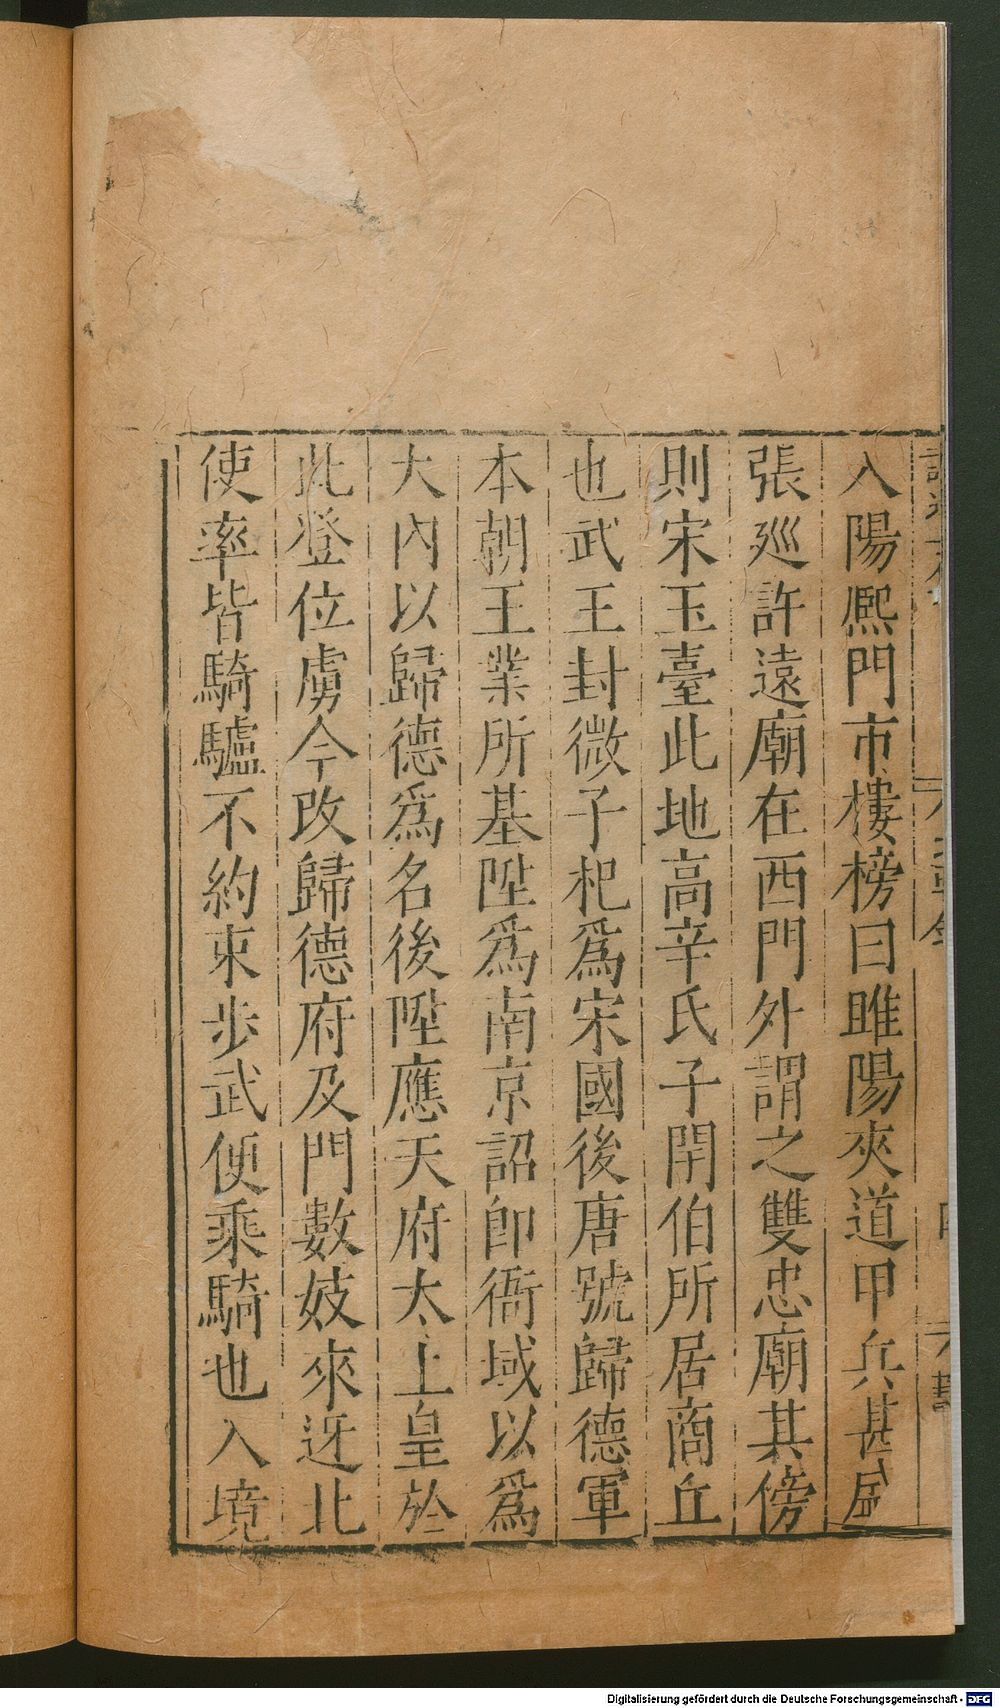 入陽熈門市樓榜曰雎陽夾道甲兵甚盛
張廵許遠廟在西門外謂之雙忠廟其傍
則宋玉臺此地高辛氏子閼伯所居商丘
也武王封微子杞爲宋國後唐號歸德軍
本朝王業所基陞爲南京詔卽衙域以爲
大內以歸德爲名後陞應天府太上皇於
此登位虜今改歸德府及門數妓來迓北
使率皆騎驢不約束步武便乘騎也入境
Digitalisierung gefördert durch die Deutsche Forschungsgemeinschaft - DFG